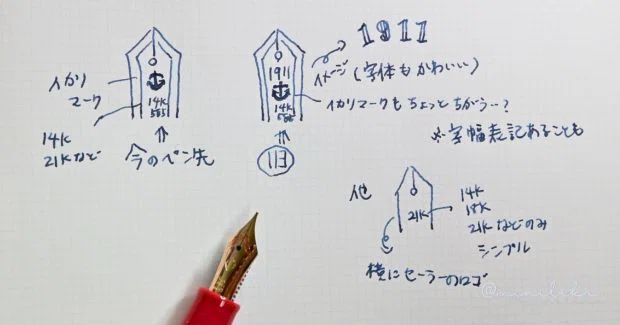 イカリ
マーク
14K
21Kなど
14K
585
今のペン先
1911
14K
585
113
1911
イメージ(字体もかわいい)
イカリマークもちょっとちがう…?
※字幅表記あることも
他
21K
14K
18K
21Kなどのみ
シンプル
横にセーラーのロゴ